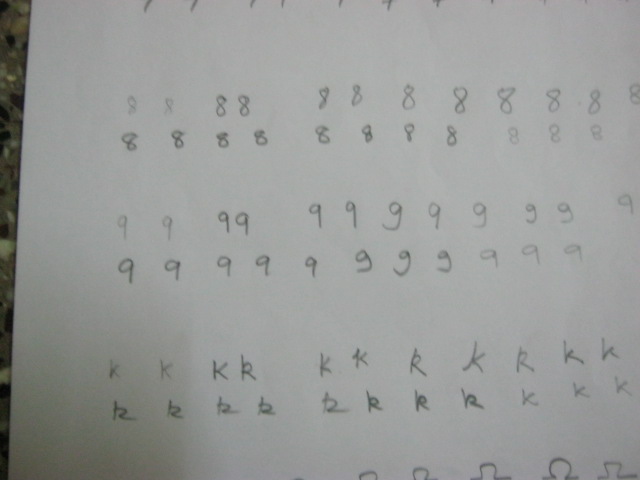 8 8 8 8 8 8 8 8 8 8 8 8
8 8 8 8 8 8 8 8 8 8 8
9 9 9 9 9 9 9 9 9 9 9 9
9 9 9 9 9 9 9 9 9 9 9
k k k k k k k k k k k
k k k k k k k k k k k
Ω Ω Ω Ω Ω